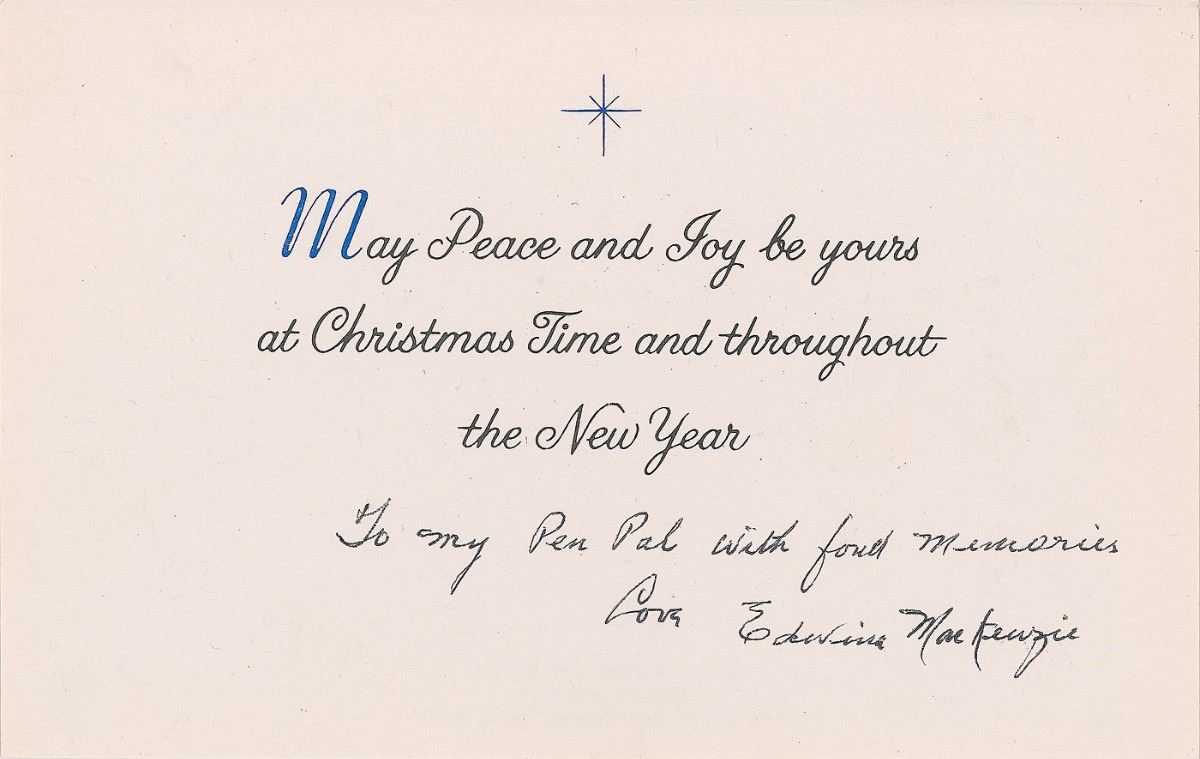 May Peace and Joy be yours
at Christmas Time and throughout
the New Year
To my Pen Pal with fond memories
Love Edwina MacKenzie